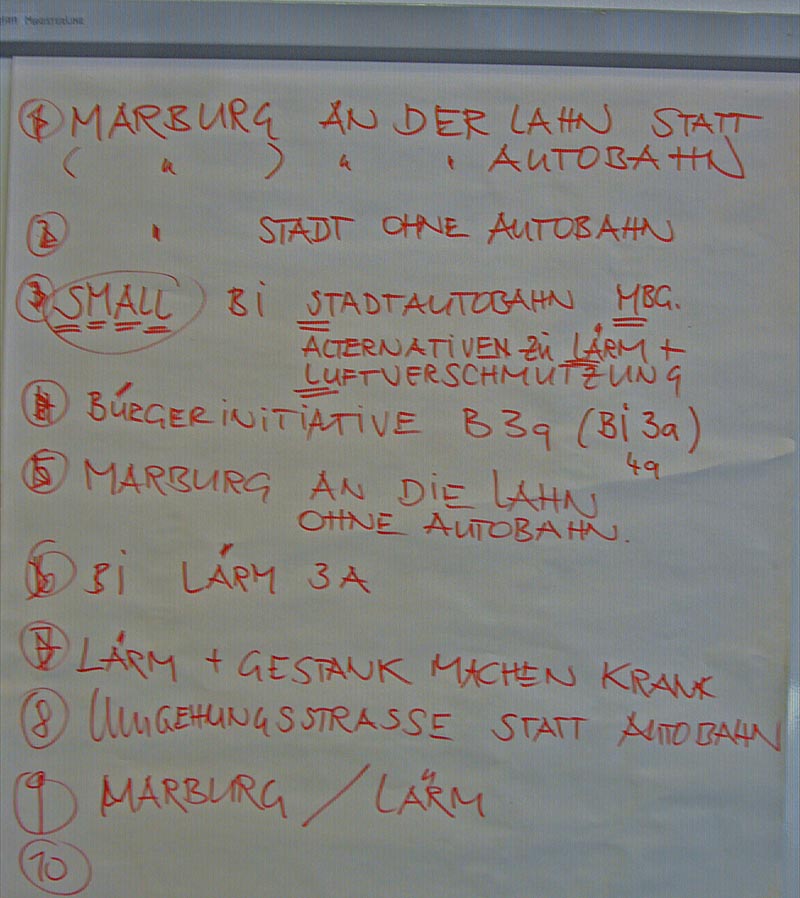 ① MARBURG AN DER LAHN STATT
( " ) " " AUTOBAHN
② " STADT OHNE AUTOBAHN
③ SMALL BI STADTAUTOBAHN MBG.
ALTERNATIVEN ZU LÄRM +
LUFTVERSCHMUTZUNG
④ BÜRGERINITIATIVE B3a (Bi 3a)
4a
⑤ MARBURG AN DIE LAHN
OHNE AUTOBAHN.
⑥ BI LÄRM 3A
⑦ LÄRM + GESTANK MACHEN KRANK
⑧ UMGEHUNGSSTRASSE STATT AUTOBAHN
⑨ MARBURG / LÄRM
⑩